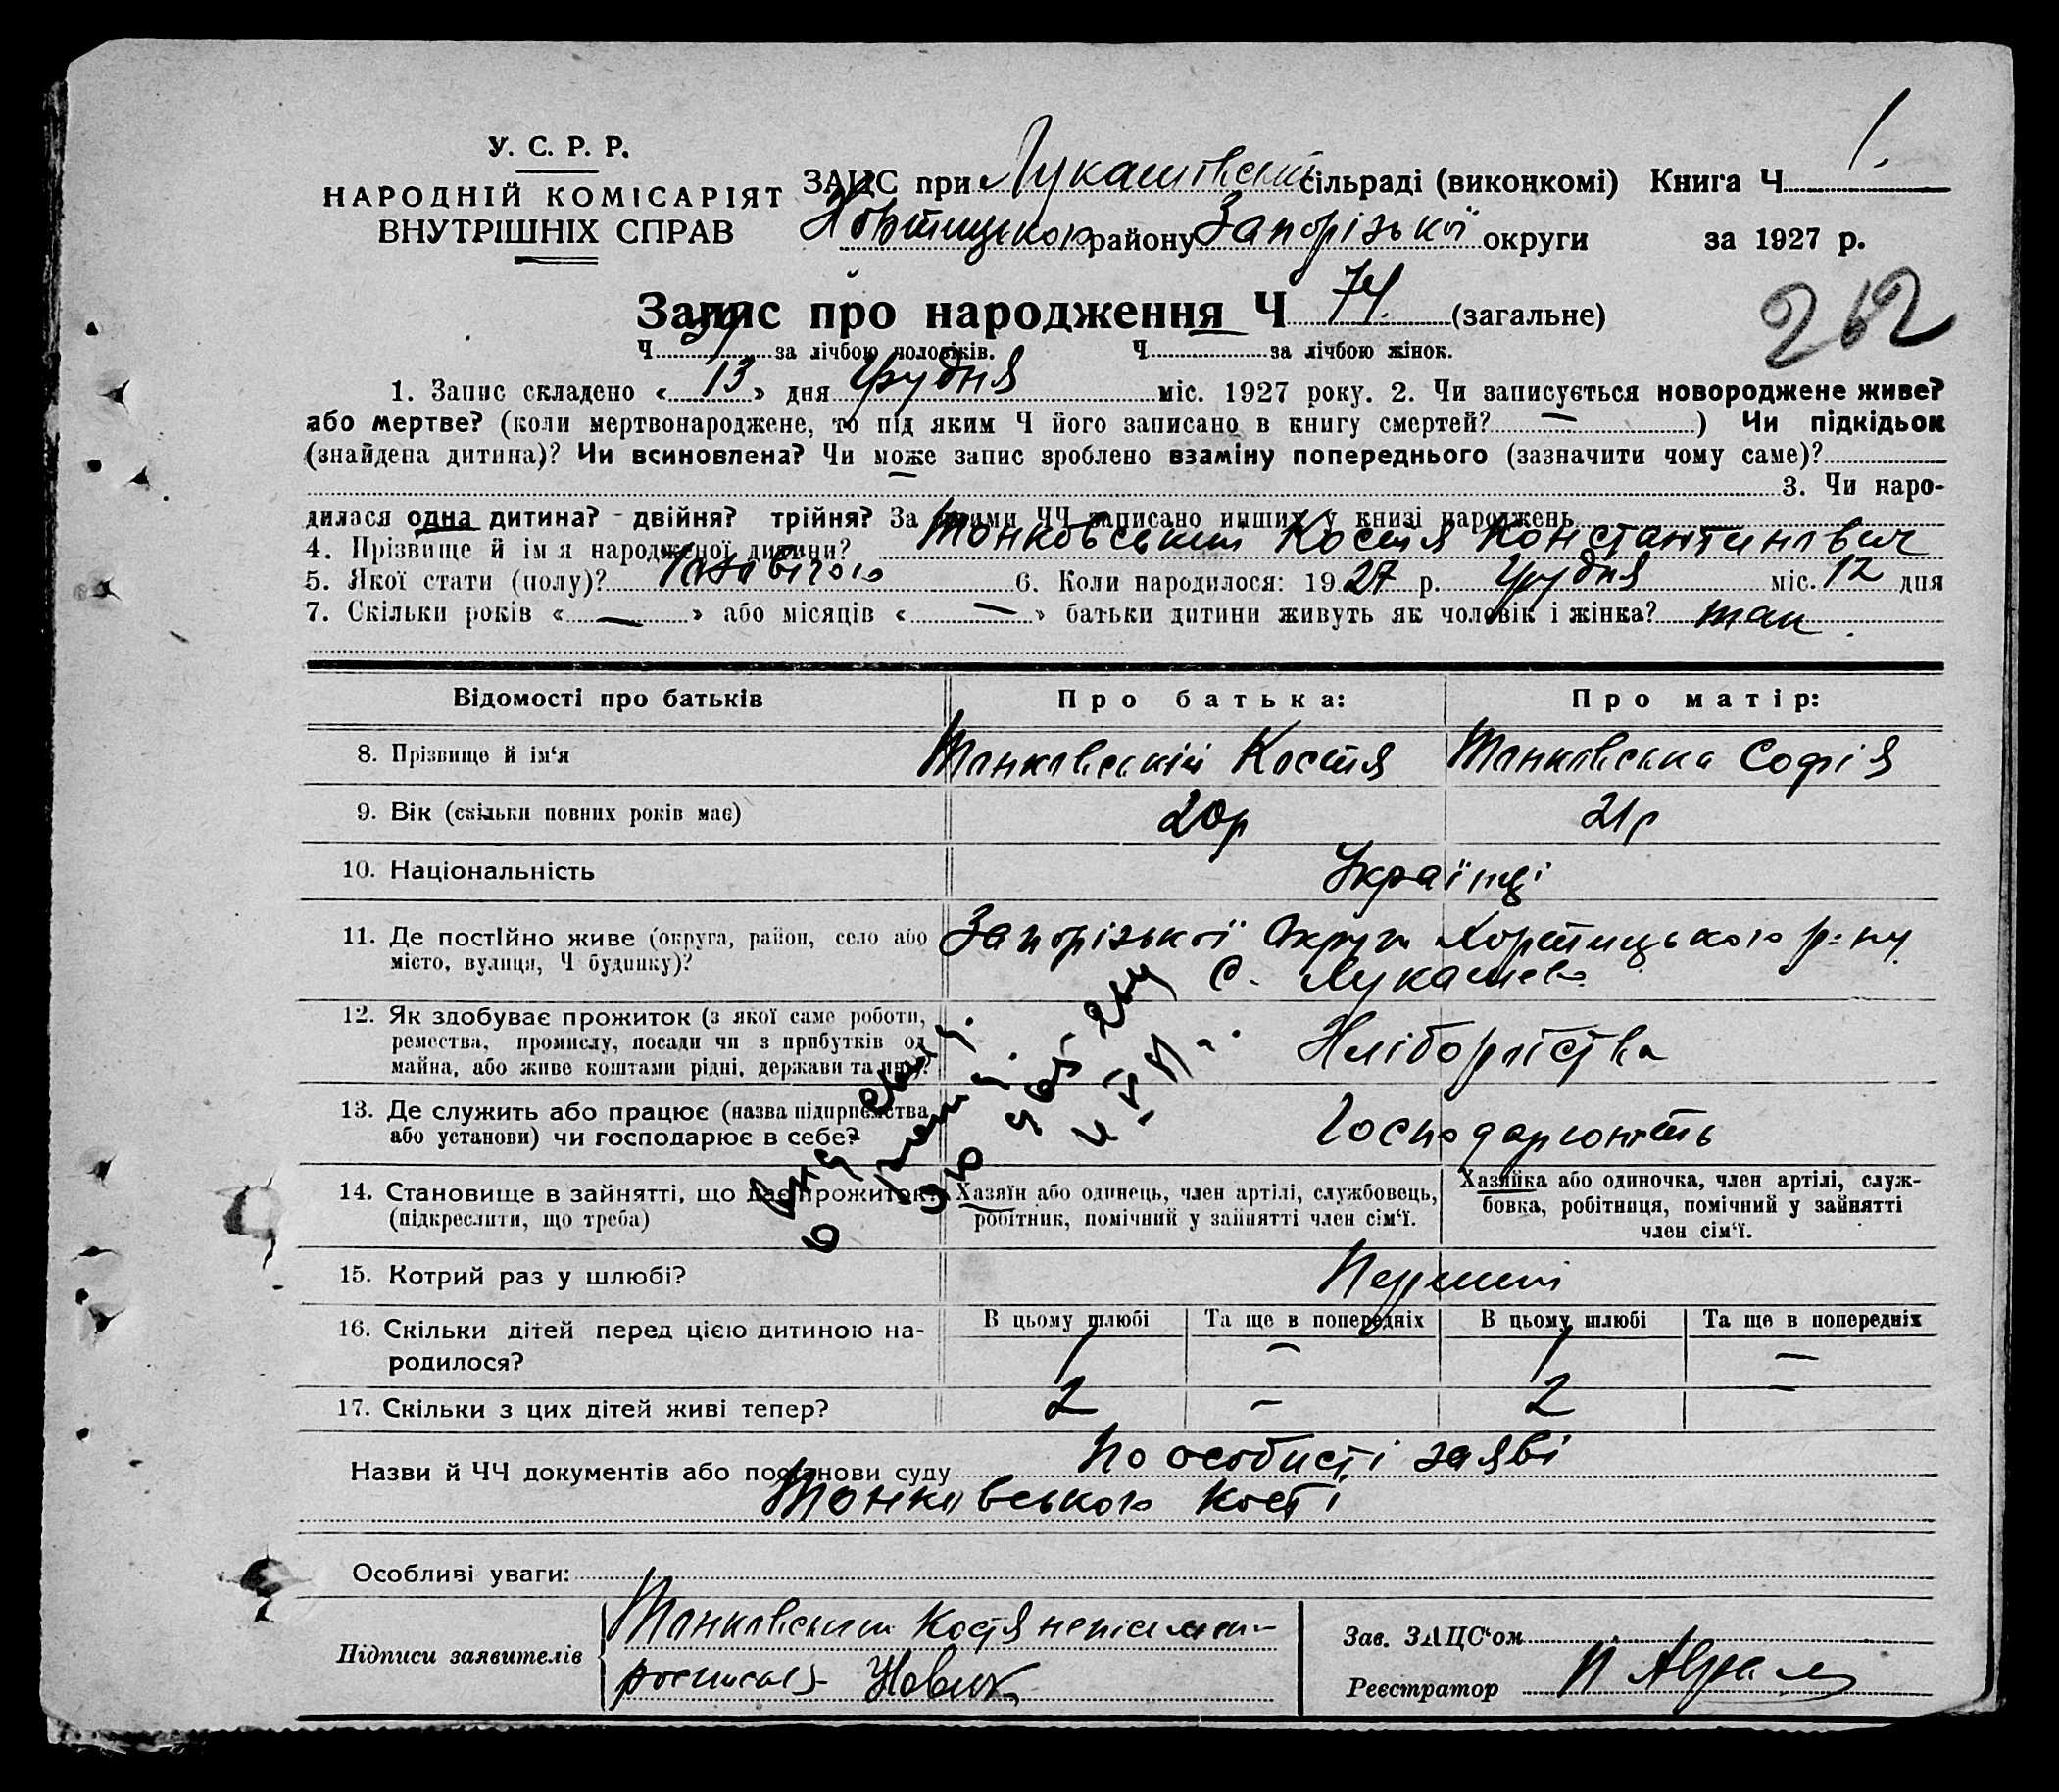 У. С. Р. Р.
НАРОДНІЙ КОМІСАРІЯТ
ВНУТРІШНІХ СПРАВ
ЗАЦС при Лукашівській сільраді (виконкомі) Книга Ч 1.
району Запорізької округи за 1927 р.
Запис про народження Ч 74. (загальне)
262
Ч за лічбою чоловіків. Ч за лічбою жінок.
1. Запис складено « 13 » дня Грудня міс. 1927 року. 2. Чи записується новороджене живе?
або мертве? (коли мертвонароджене, то під яким Ч його записано в книгу смертей? — ) Чи підкідьок
(знайдена дитина)? Чи всиновлена? Чи може запис зроблено взаміну попереднього (зазначити чому саме)?
3. Чи наро-
дилася одна дитина? - двійня? трійня? За якими ЧЧ записано инших у книзі народжень
4. Прізвище й ім'я народженої дитини? Тонковський Костя Константинович
5. Якої стати (полу)? 6. Коли народилося: 1927 р. Грудня міс. 12 дня
7. Скільки років « — » або місяців « — » батьки дитини живуть як чоловік і жінка? так.
Відомості про батьків Про батька: Про матір:
8. Прізвище й ім'я Тонковський Костя Тонковська Софія
9. Вік (скільки повних років має) 20р 21р
10. Національність Українці
11. Де постійно живе (округа, район, село або Запорізької Округи Хортицького р-ну
місто, вулиця, Ч будинку)? С. Лукашево
12. Як здобуває прожиток (з якої саме роботи,
ремества, промислу, посади чи з прибутків од Хліборобства
майна, або живе коштами рідні, держави та инш?
13. Де служить або працює (назва підприємства
або установи) чи господарює в себе? Господарюють
14. Становище в зайнятті, що дає прожиток? Хазяїн або одинець, член артілі, службовець, Хазяйка або одиночка, член артілі, служ-
(підкреслити, що треба) робітник, помічний у зайнятті член сім'ї. бовка, робітниця, помічний у зайнятті
член сім'ї.
15. Котрий раз у шлюбі? Перший
16. Скільки дітей перед цією дитиною на- В цьому шлюбі Та ще в попередніх В цьому шлюбі Та ще в попередніх
родилося? 1 — 1 —
17. Скільки з цих дітей живі тепер? 2 — 2 —
Назви й ЧЧ документів або постанови суду по особисті заяві
Тонковського Кості
Особливі уваги:
Підписи заявителів Тонковський Костя
Новик
Зав. ЗАЦС'ом
Реєстратор